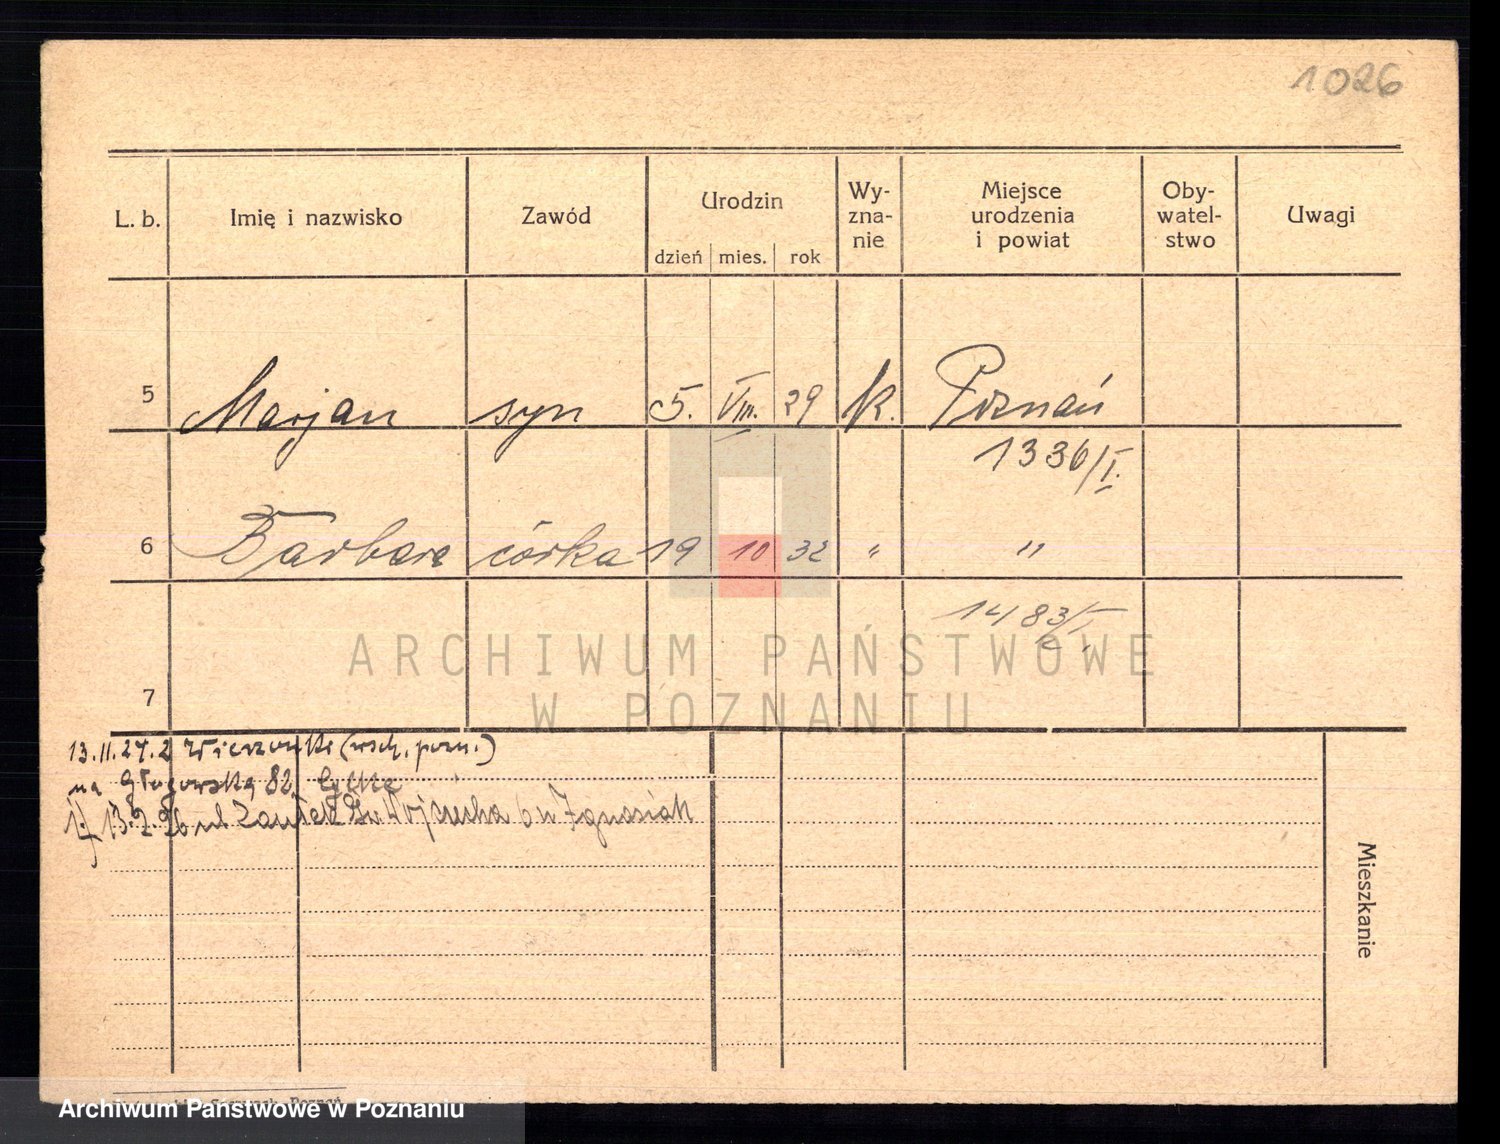 1026
L. b. Imię i nazwisko Zawód Urodzin dzień mies. rok Wy-zna-nie Miejsce urodzenia i powiat Oby-watel-stwo Uwagi
5 Marjan syn 5. VIII. 29 k. Poznań
1336/I.
6 Barbara córka 19 10 32 " "
1483/I
ARCHIWUM PAŃSTWOWE
W POZNANIU
7
13.11.27. z Wierzonki (wsch. pozn.)
na Głogowską 82
13.2.36 ul Zaułek Św Wojciecha 6 u Ignasiak
Mieszkanie
Archiwum Państwowe w Poznaniu